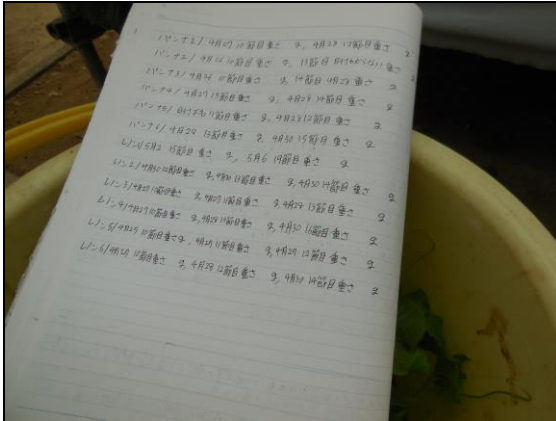 パンナ1/ 4月27 12節目重さ g, 4月28 13節目重さ g
パンナ2/ 4月26 10節目重さ g, 13節目 日付わからない 重さ g
パンナ3/ 4月26 10節目重さ g, 14節目 4月28 重さ g
パンナ4/ 4月27 13節目重さ g, 4月28 14節目 重さ g
パンナ5/ 日付不明 11節目重さ g, 4月28 12節目 重さ g
パンナ6/ 4月28 13節目重さ g, 4月30 15節目 重さ g
レノン1/ 5月2 15節目重さ g, 5月6 19節目重さ g
レノン2/ 4月30 12節目重さ g, 4月30 13節目重さ g, 4月30 14節目重さ g
レノン3/ 4月27 11節目重さ g, 4月27 11節目重さ g, 4月29 13節目重さ g
レノン4/ 4月27 10節目重さ g, 4月28 11節目重さ g, 4月30 16節目重さ g
レノン5/ 4月25 10節目重さ g, 4月27 11節目重さ g, 4月29 12節目重さ g
レノン6/ 4月27 11節目重さ g, 4月29 12節目重さ g, 4月30 14節目重さ g